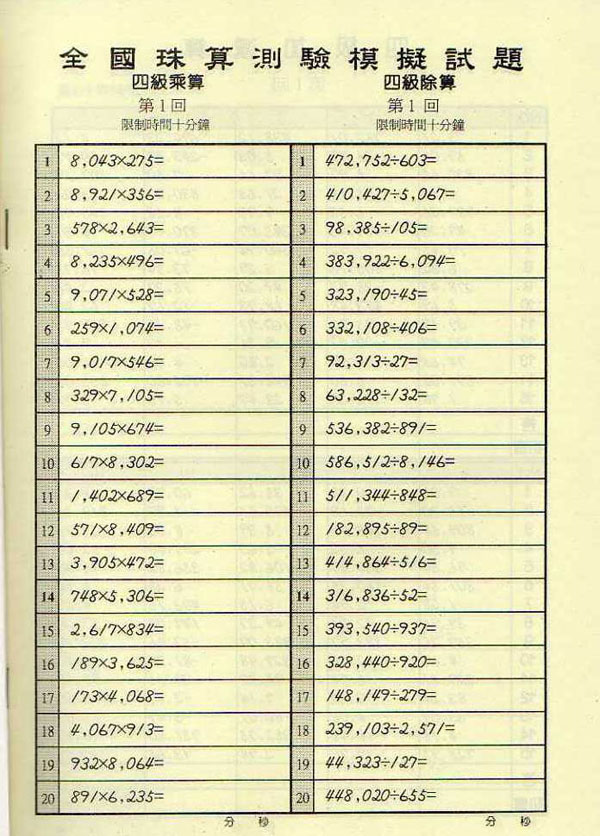 全國珠算測驗模擬試題
四級乘算
第1回
限制時間十分鐘
1 8,043×275=
2 8,921×356=
3 578×2,643=
4 8,235×496=
5 9,071×528=
6 259×1,074=
7 9,017×546=
8 329×7,105=
9 9,105×674=
10 617×8,302=
11 1,402×689=
12 571×8,409=
13 3,905×472=
14 748×5,306=
15 2,617×834=
16 189×3,625=
17 173×4,068=
18 4,067×913=
19 932×8,064=
20 891×6,235=
分 秒
四級除算
第1回
限制時間十分鐘
1 472,752÷603=
2 410,427÷5,067=
3 98,385÷105=
4 383,922÷6,094=
5 323,190÷45=
6 332,108÷406=
7 92,313÷27=
8 63,228÷132=
9 536,382÷891=
10 586,512÷8,146=
11 511,344÷848=
12 182,895÷89=
13 414,864÷516=
14 316,836÷52=
15 393,540÷937=
16 328,440÷920=
17 148,149÷279=
18 239,103÷2,571=
19 44,323÷127=
20 448,020÷655=
分 秒